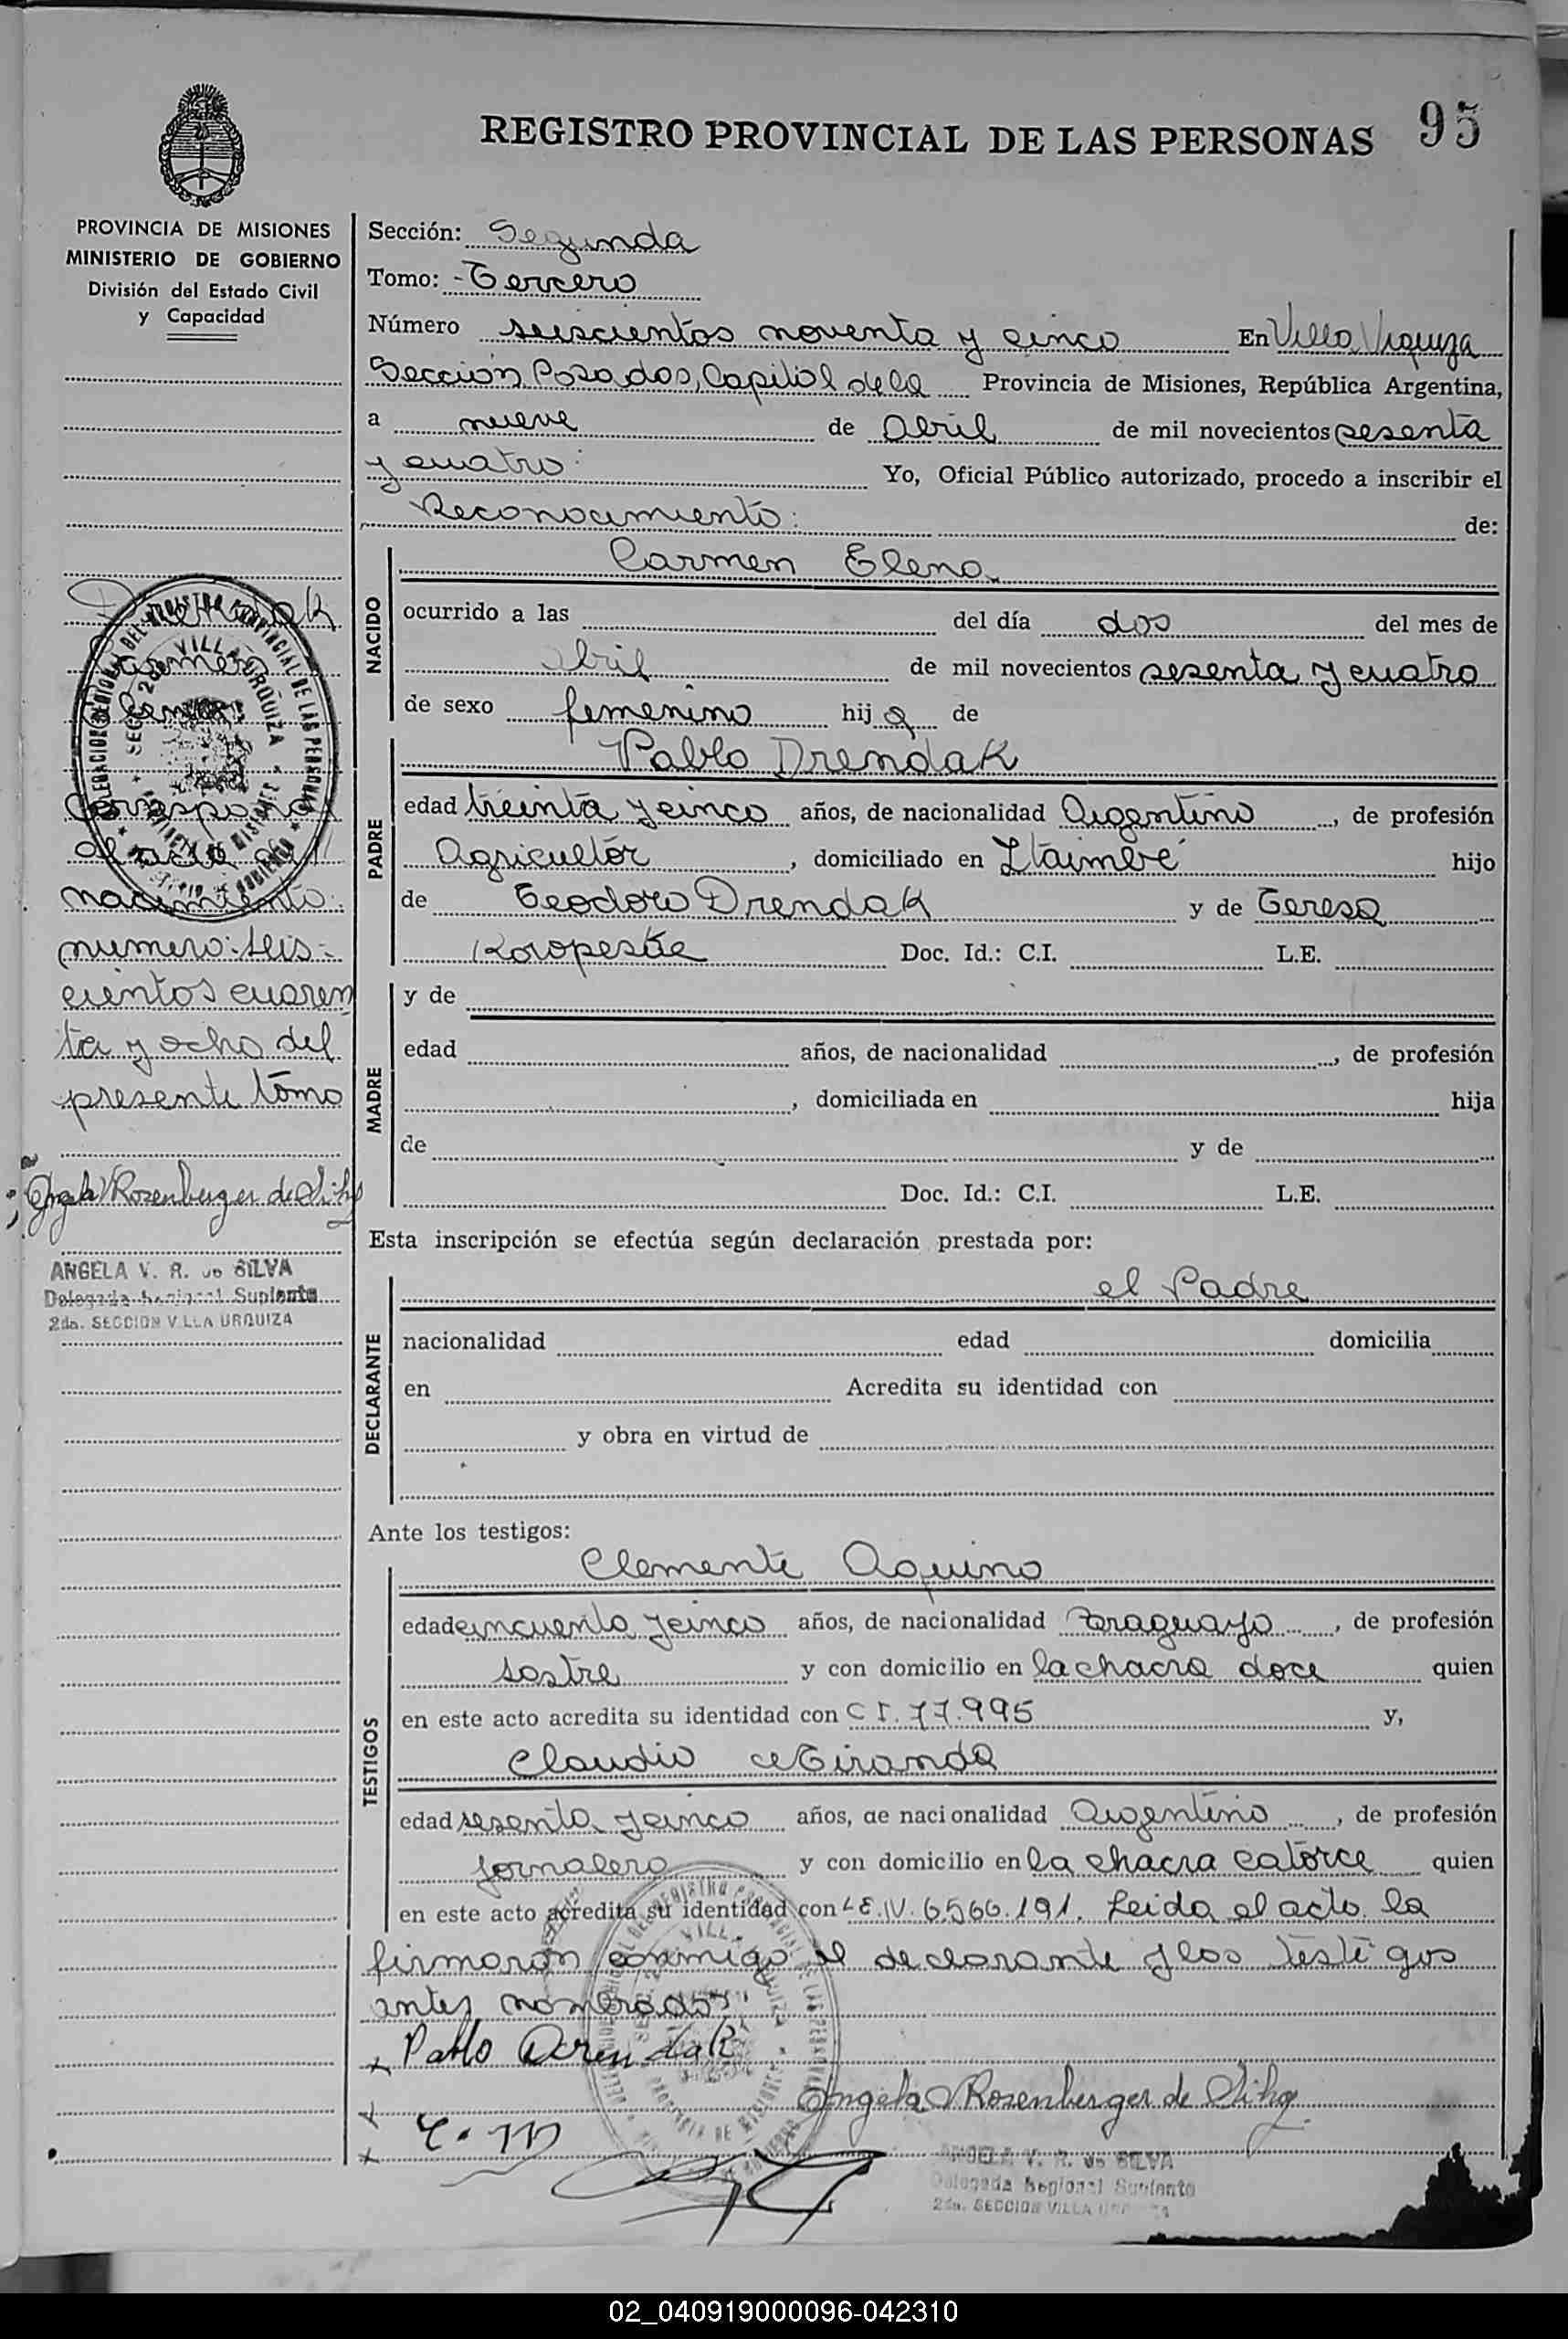 REGISTRO PROVINCIAL DE LAS PERSONAS 95
PROVINCIA DE MISIONES
MINISTERIO DE GOBIERNO
División del Estado Civil
y Capacidad
Drendak
Carmen
Corresponde
al acta de
nacimiento
numero seis-
cientos cuaren
ta y ocho del
presente tomo
Angela V Rosenberger de Silva
ANGELA V. R. de SILVA
Delegada Regional Suplente
2da. SECCION VILLA URQUIZA
Sección: Segunda
Tomo: - Tercero
Número seiscientos noventa y cinco En Villa Urquiza
Sección Posadas, Capital de la Provincia de Misiones, República Argentina,
a nueve de Abril de mil novecientos sesenta
y cuatro: Yo, Oficial Público autorizado, procedo a inscribir el
Reconocimiento: de:
NACIDO
Carmen Elena
ocurrido a las del día dos del mes de
abril de mil novecientos sesenta y cuatro
de sexo femenino hij a de
PADRE
Pablo Drendak
edad treinta y cinco años, de nacionalidad Argentino, de profesión
Agricultor, domiciliado en Itaimbé hijo
de Teodoro Drendak y de Teresa
Doc. Id.: C.I. L.E.
MADRE
y de
edad años, de nacionalidad , de profesión
, domiciliada en hija
de y de
Doc. Id.: C.I. L.E.
Esta inscripción se efectúa según declaración prestada por:
DECLARANTE
el Padre
nacionalidad edad domicilia
en Acredita su identidad con
y obra en virtud de
Ante los testigos:
TESTIGOS
Clemente Aquino
edad cincuenta y cinco años, de nacionalidad Paraguayo, de profesión
sastre y con domicilio en la chacra doce quien
en este acto acredita su identidad con C I. 77.995 y,
Claudio Miranda
edad sesenta y cinco años, de nacionalidad Argentino, de profesión
jornalero y con domicilio en la chacra catorce quien
en este acto acredita su identidad con L E. N. 6.566.191. Leida el acto la
firmaron conmigo el declarante y los testigos
antes nombrados
x Pablo Drendak
Angela V Rosenberger de Silva
x
x
ANGELA V. R. de SILVA
Delegada Regional Suplente
2da. SECCION VILLA URQUIZA
02_040919000096-042310